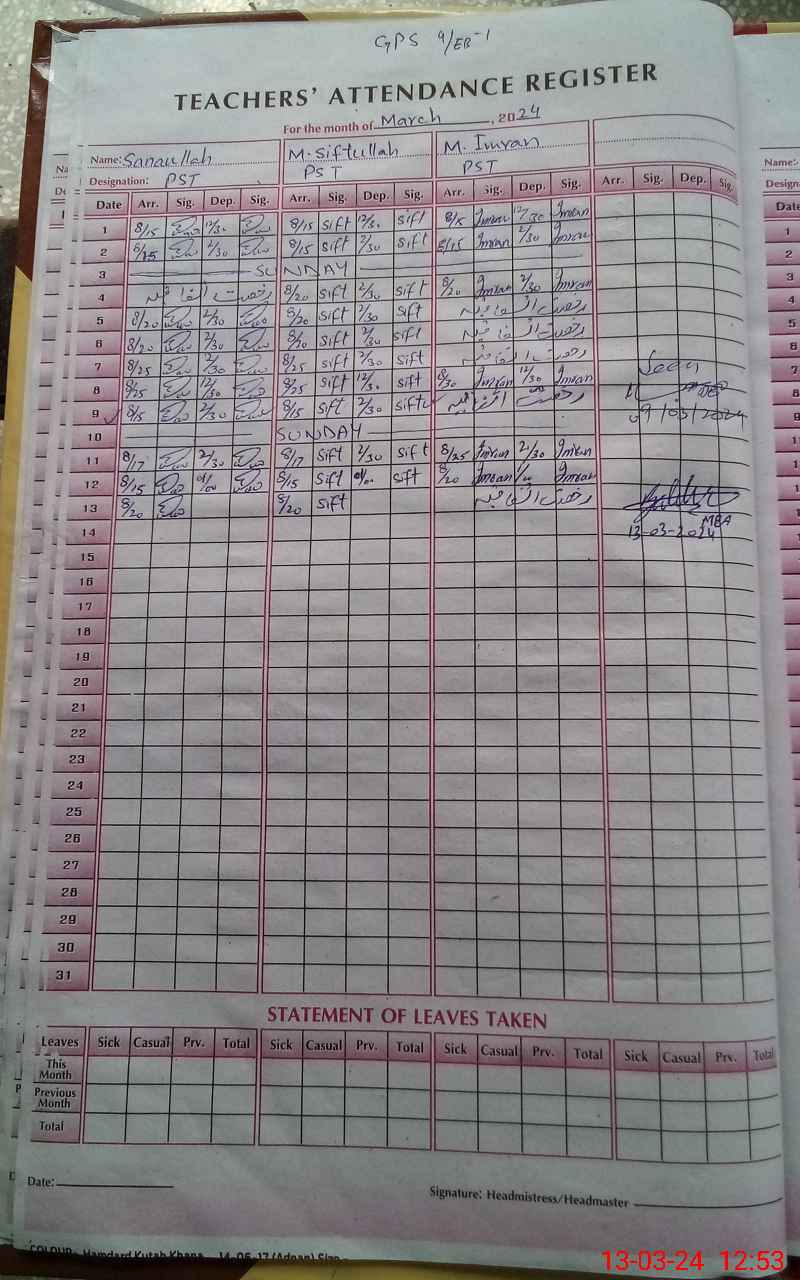 GPS 9/EB-1
TEACHERS' ATTENDANCE REGISTER
For the month of March, 2024
Name: Sanaullah M. Siftullah M. Imran
Designation: PST PST PST
Date Arr. Sig. Dep. Sig. Arr. Sig. Dep. Sig. Arr. Sig. Dep. Sig. Arr. Sig. Dep. Sig.
1 8/15 12/30 8/15 Sift 12/30 Sift 8/15 Imran 12/30 Imran
2 8/15 2/30 8/15 Sift 2/30 Sift 8/15 Imran 2/30 Imran
3 SUNDAY
4 رخصت اتفاقیہ 8/20 Sift 2/30 Sift 8/20 Imran 2/30 Imran
5 8/20 2/30 8/20 Sift 2/30 Sift رخصت اتفاقیہ
6 8/20 2/30 8/20 Sift 2/30 Sift رخصت اتفاقیہ
7 8/25 2/30 8/25 Sift 2/30 Sift رخصت اتفاقیہ
8 8/25 12/30 8/25 Sift 12/30 Sift 8/30 Imran 12/30 Imran
9 8/15 2/30 8/15 Sift 2/30 Sift رخصت اتفاقیہ 09/03/2024
10 SUNDAY
11 8/17 2/30 8/17 Sift 2/30 Sift 8/25 Imran 2/30 Imran
12 8/15 01/00 8/15 Sift 01/00 Sift 8/20 Imran 1/00 Imran
13 8/20 8/20 Sift رخصت اتفاقیہ
MEA
14 13-03-2024
15
16
17
18
19
20
21
22
23
24
25
26
27
28
29
30
31
STATEMENT OF LEAVES TAKEN
Leaves Sick Casual Prv. Total Sick Casual Prv. Total Sick Casual Prv. Total Sick Casual Prv. Total
This Month
Previous Month
Total
Date:
Signature: Headmistress/Headmaster
13-03-24 12:53